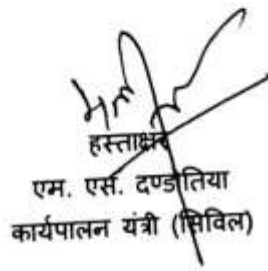 हस्ताक्षर
एम. एस. दण्डोतिया
कार्यपालन यंत्री (सिविल)